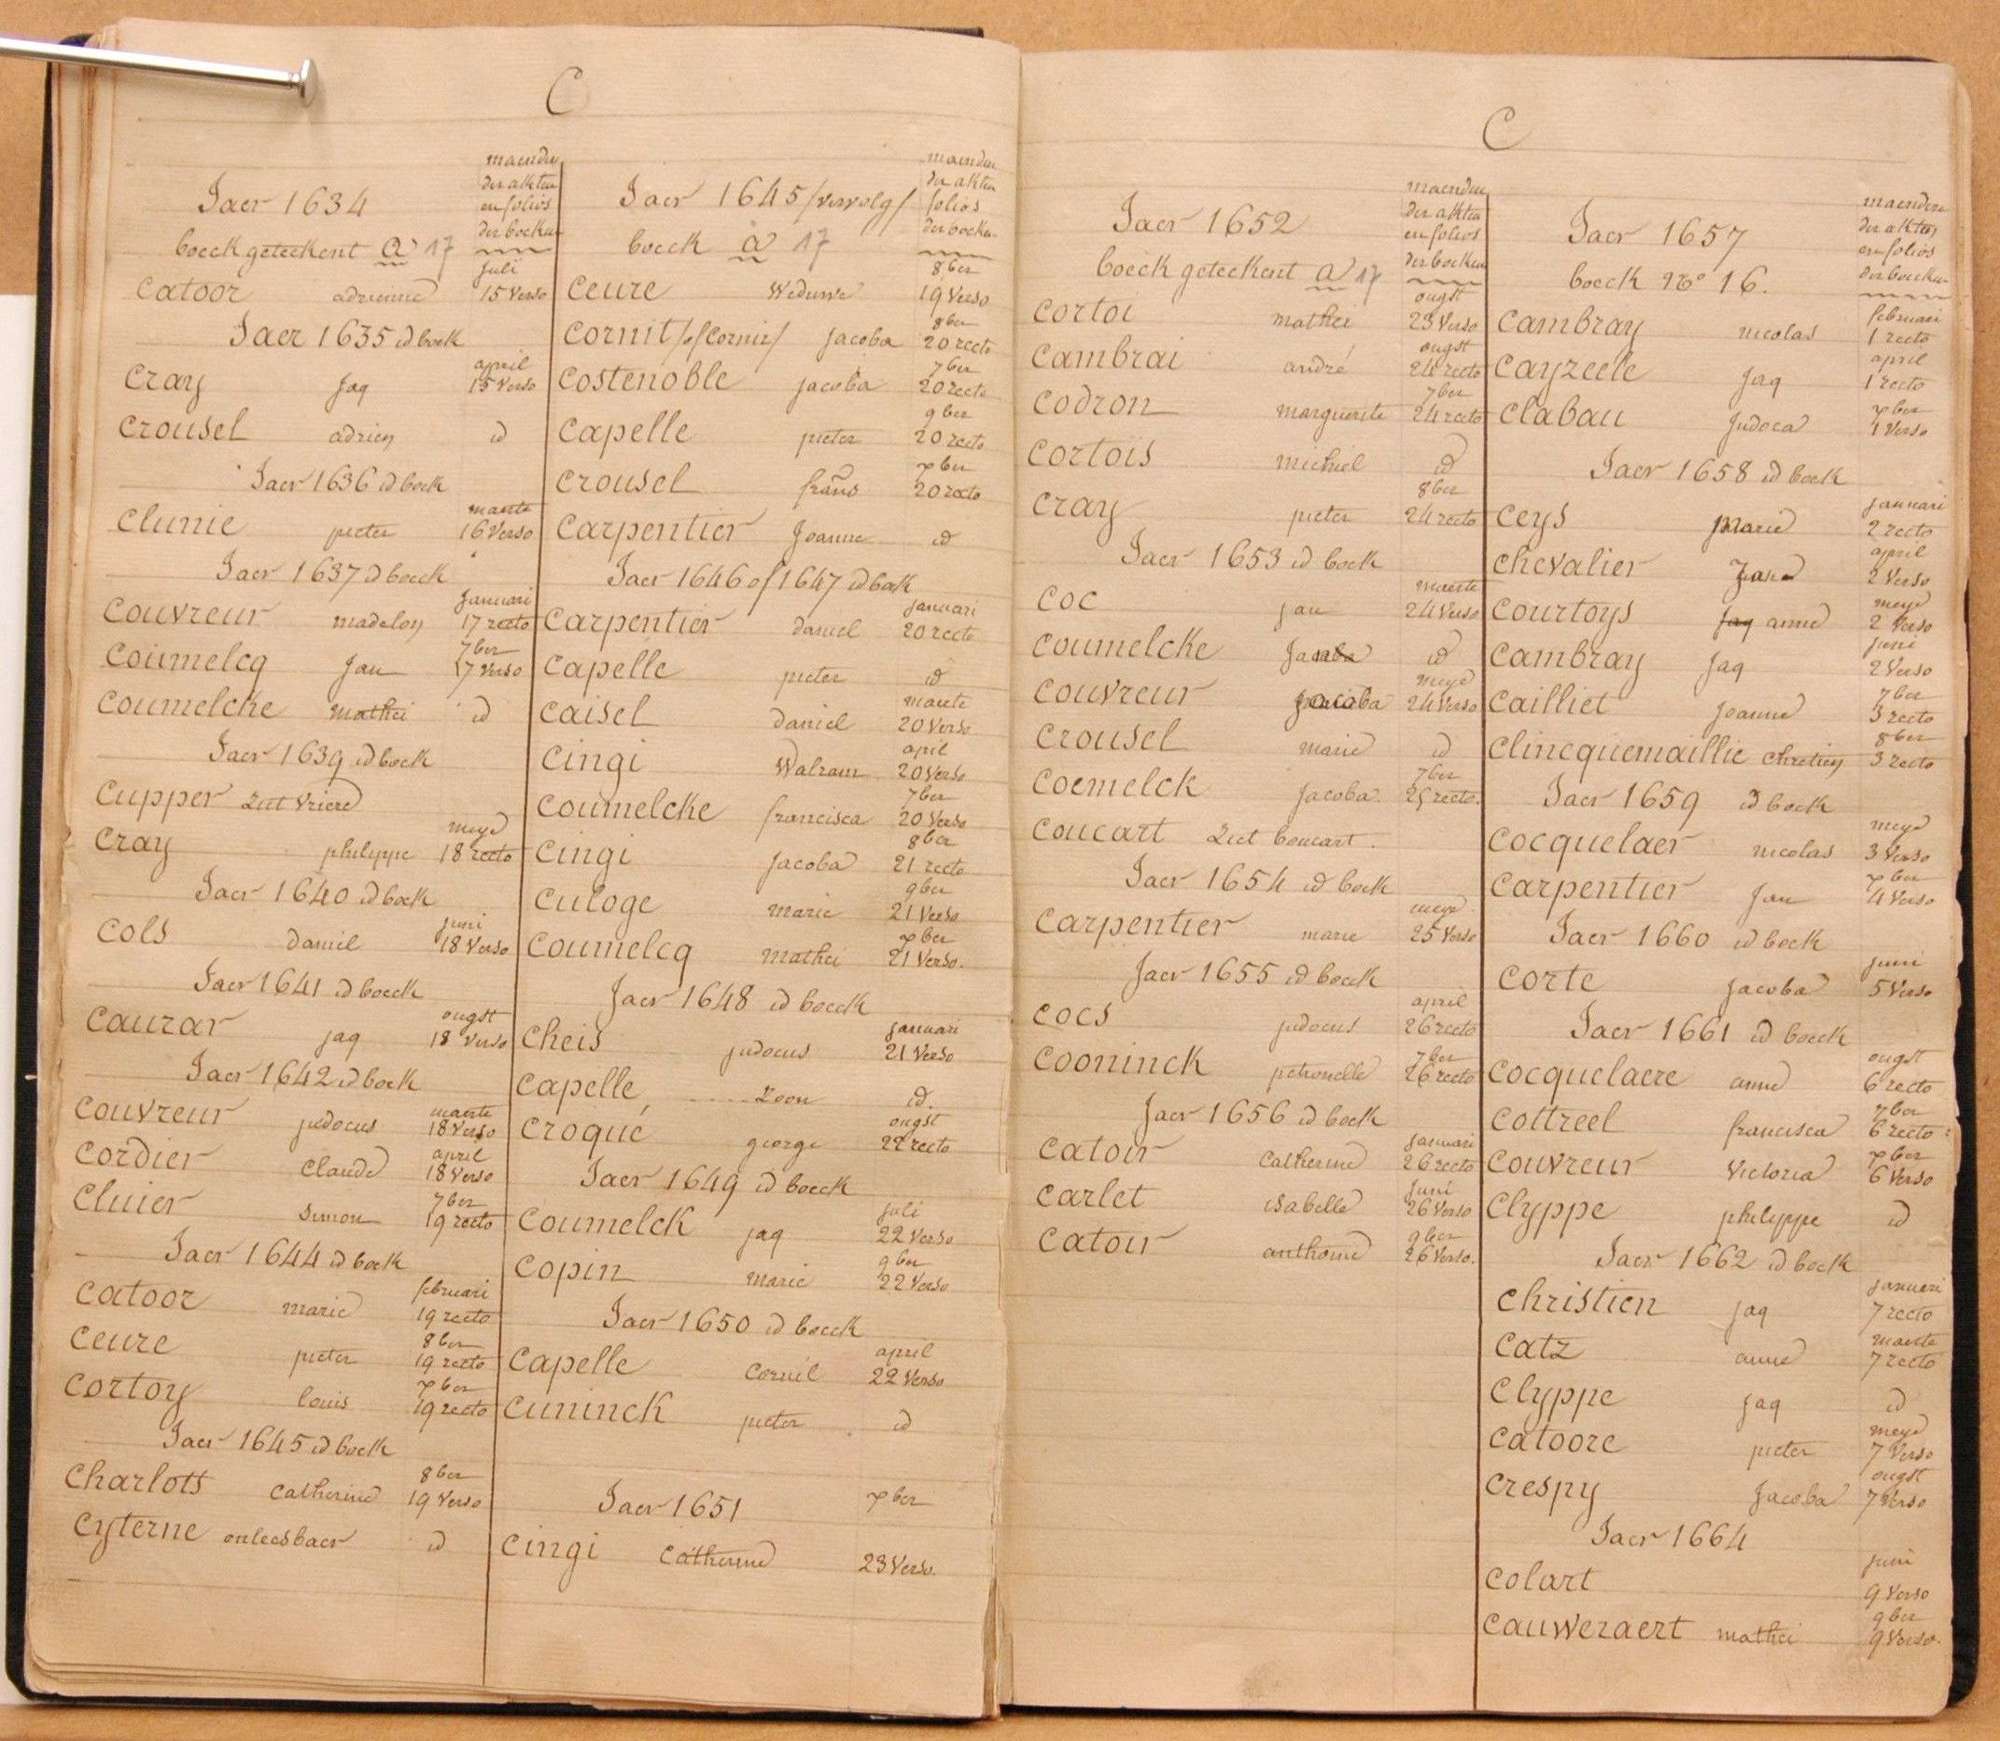 C
Jaer 1634
maenden
der akten
en folios
der boeken
boeck geteekent a 17
juli
Catoor adrienne 15 Verso
Jaer 1635 id boek
april
Cray jaq 15 Verso
Crousel adrien id
Jaer 1636 id boek
maerte
Clunie pieter 16 Verso
Jaer 1637 id boeck
januari
Couvreur madelon 17 recto
7ber
Coumelcq jan 17 Verso
Coumelcke mathei id
Jaer 1639 id boek
Cupper ziet Vriere
meye
Cray philippe 18 recto
Jaer 1640 id boek
juni
Cols Daniel 18 Verso
Jaer 1641 id boeck
ougst
Caurar jaq 18 Verso
Jaer 1642 id boek
maerte
Couvreur judocus 18 Verso
april
Cordier Claude 18 Verso
7ber
Cluier simon 19 recto
Jaer 1644 id boek
februari
Catoor marie 19 recto
8ber
Ceure pieter 19 recto
xber
Cortoy louis 19 recto
Jaer 1645 id boek
8ber
Charlots Catherine 19 Verso
Cyterne onleesbaer id
Jaer 1645 /vervolg/
maenden
der akten
folios
der boeken
boeck a 17
8ber
Ceure Weduwe 19 Verso
8ber
Cornit /of Cornir/ jacoba 20 recto
7ber
Costenoble jacoba 20 recto
9ber
Capelle pieter 20 recto
xber
Crousel frans 20 recto
Carpentier Joanne id
Jaer 1646 of 1647 id boek
januari
Carpentier daniel 20 recto
Capelle pieter id
maerte
Caisel Daniel 20 Verso
april
Cingi Walram 20 Verso
7ber
Coumelcke francisca 20 Verso
8ber
Cingi Jacoba 21 recto
9ber
Culoge marie 21 Verso
xber
Coumelcq mathei 21 Verso.
Jaer 1648 id boeck
januari
Cheis judocus 21 Verso
Capelle, ..... Zoon id.
ougst
Croqué george 22 recto
Jaer 1649 id boeck
juli
Coumelck jaq 22 Verso
9ber
Copin marie 22 Verso
Jaer 1650 id boeck
april
Capelle Cornil 22 Verso
Cuninck pieter id
Jaer 1651 xber
Cingi Catherine 23 Verso.
C
Jaer 1652
maenden
der akten
en folios
der boeken
boeck geteekent a 17
ougst
Cortoi mathei 23 Verso
ougst
Cambrai andré 24 recto
7ber
Codron marguerite 24 recto
Cortois michiel id
8ber
Cray pieter 24 recto
Jaer 1653 id boek
maerte
Coc jan 24 Verso
Coumelcke id
meye
Couvreur jacoba 24 Verso
Crousel marie id
7ber
Coemelck Jacoba 25 recto.
Coucart Ziet boucart.
Jaer 1654 id boek
meye
Carpentier marie 25 Verso
Jaer 1655 id boeck
april
Cocs judocus 26 recto
7ber
Cooninck petronelle 26 recto
Jaer 1656 id boek
januari
Catoir Catherine 26 recto
juni
Carlet isabelle 26 Verso
9ber
Catoir anthoine 26 Verso.
Jaer 1657
maenden
der akten
en folios
der boeken
boeck No 16.
februari
Cambray nicolas 1 recto
april
Cayzeele jaq 1 recto
xber
Clabau Judoca 1 Verso
Jaer 1658 id boek
januari
Ceys Marie 2 recto
april
Chevalier 2 Verso
meye
Courtoys jaq anne 2 Verso
juni
Cambray jaq 2 Verso
7ber
Cailliet Joanne 3 recto
8ber
Clincquemaillie Chretien 3 recto
Jaer 1659 id boek
meye
Cocquelaer nicolas 3 Verso
xber
Carpentier Jan 4 Verso
Jaer 1660 id boek
juni
Corte jacoba 5 Verso
Jaer 1661 id boeck
ougst
Cocquelaere anne 6 recto
7ber
Cottreel francisca 6 recto
xber
Couvreur Victoria 6 Verso
Clyppe philippe id
Jaer 1662 id boek
januari
Christien jaq 7 recto
maerte
Catz anne 7 recto
Clyppe jaq id
meye
Catoore pieter 7 Verso
ougst
Crespy Jacoba 7 Verso
Jaer 1664
juni
Colart 9 Verso
9ber
Cauweraert mathei 9 Verso.